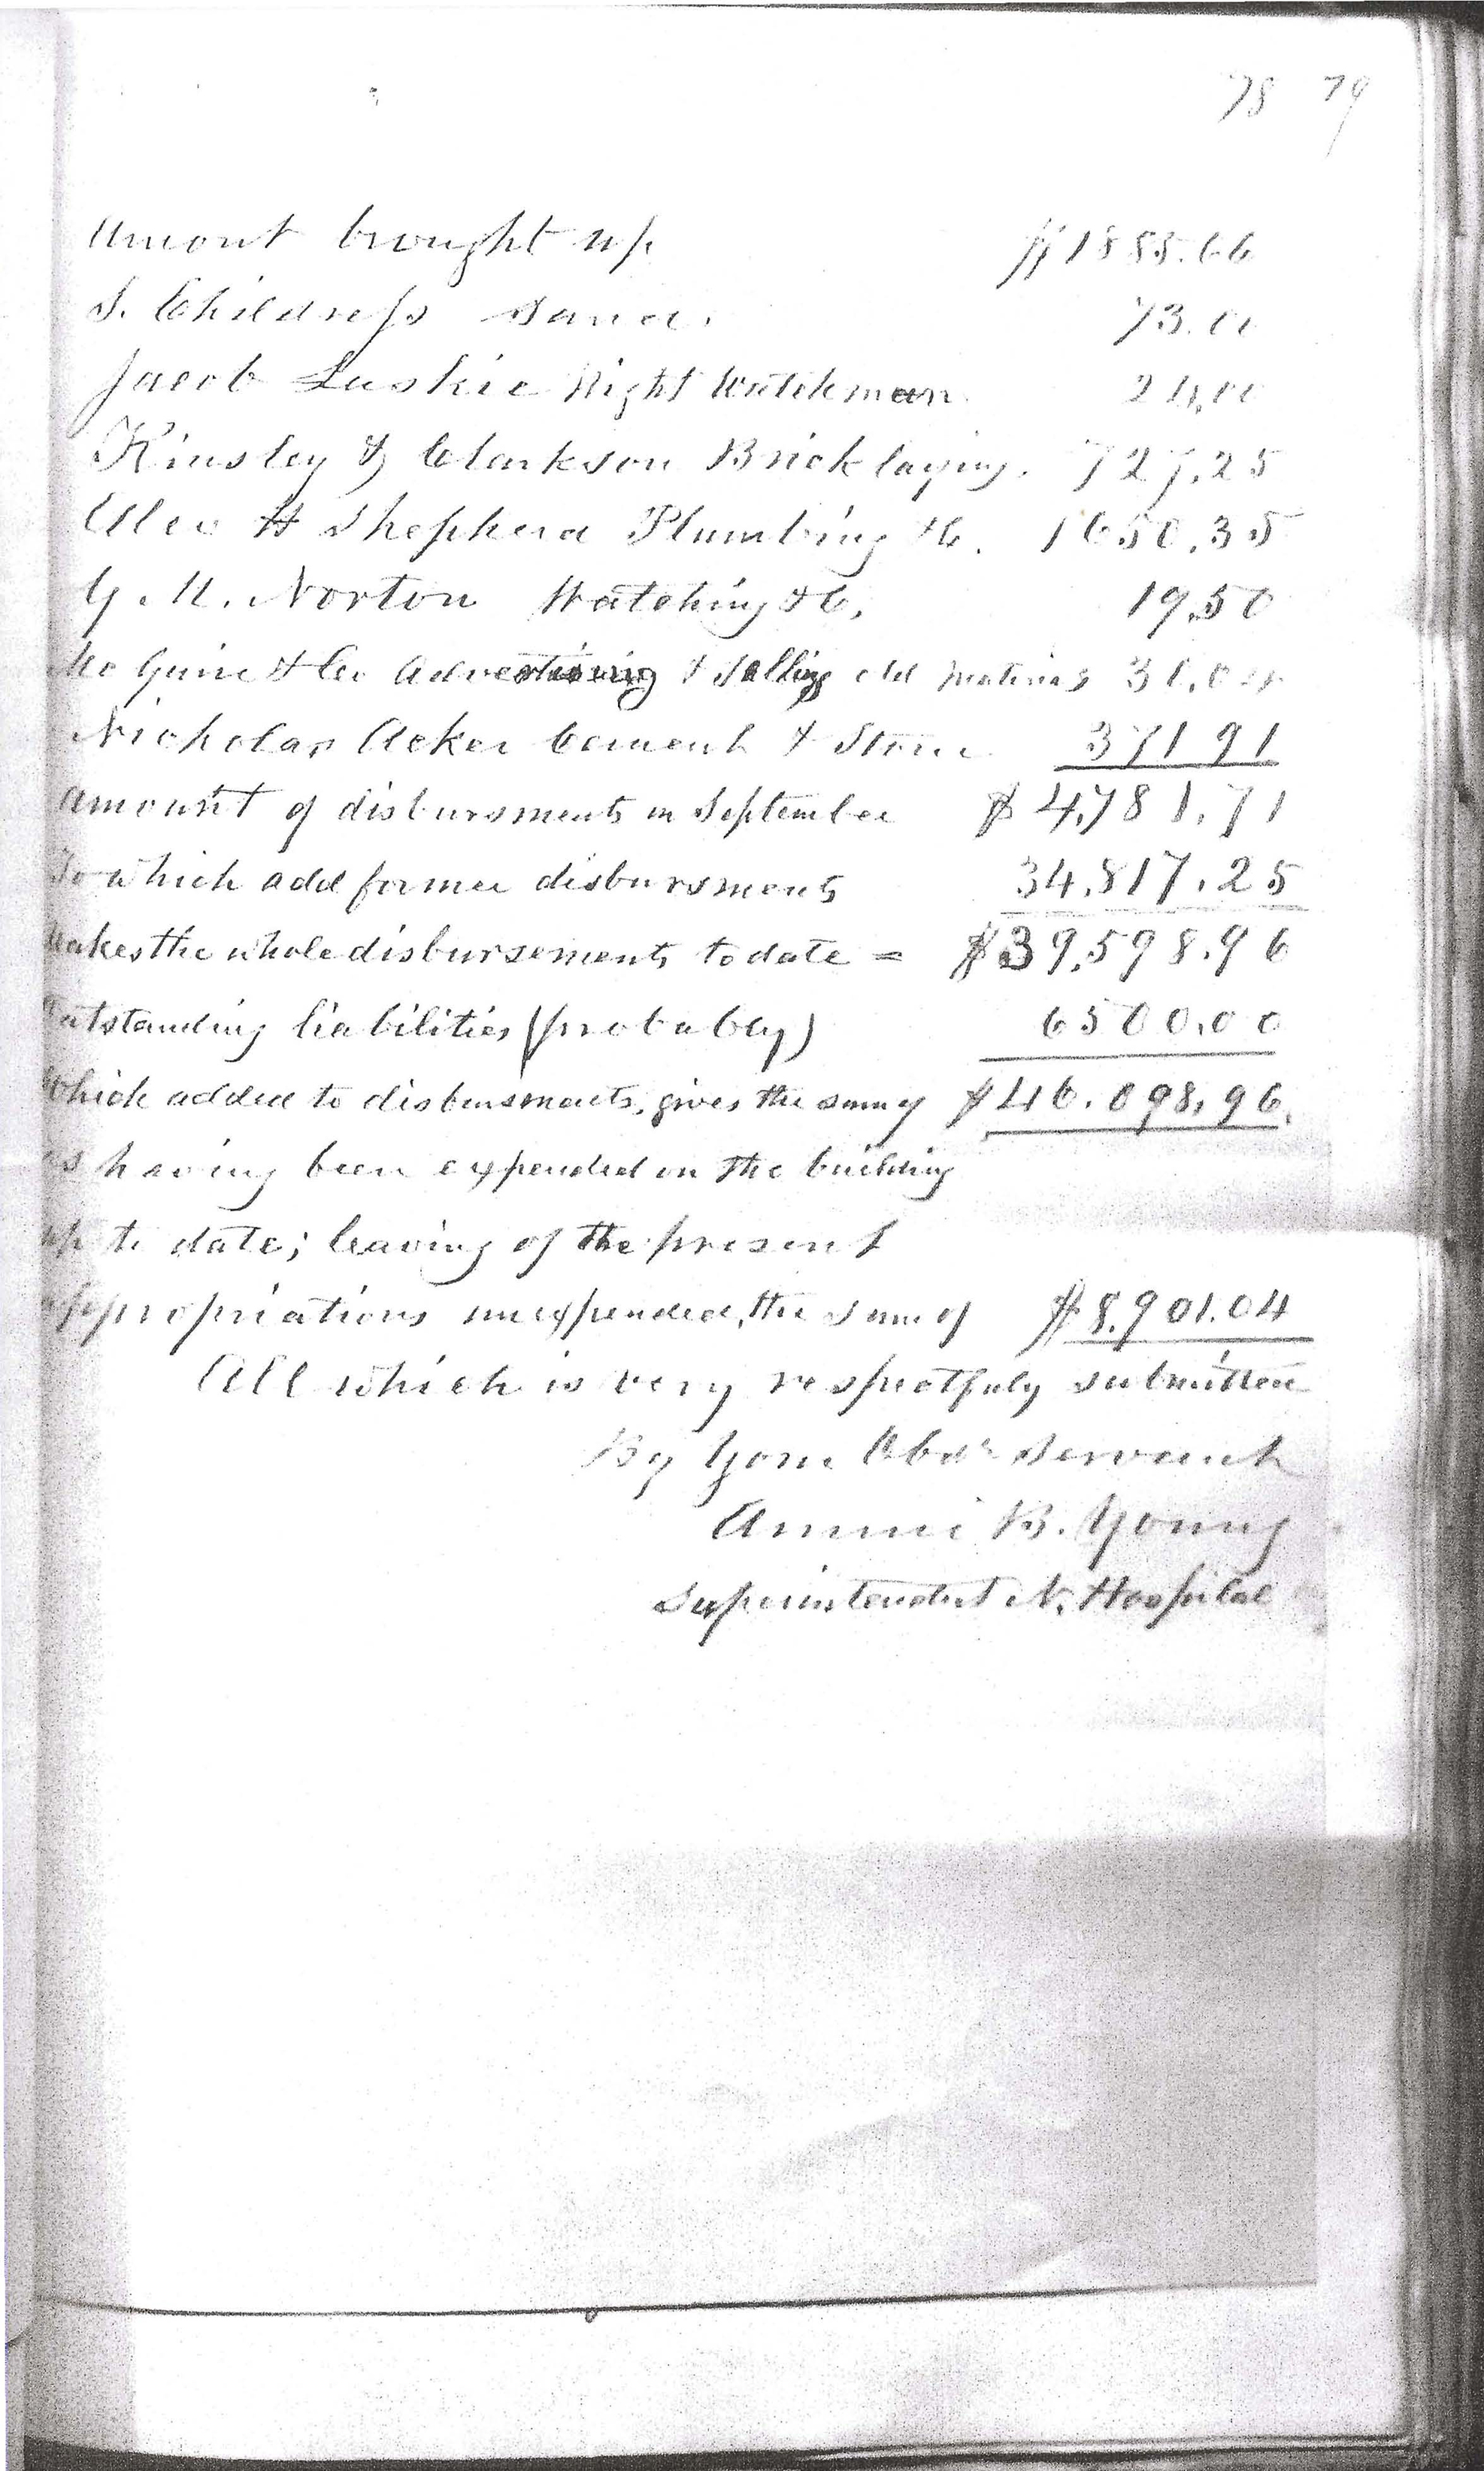 78 79
Amount brought up $1885.66
S. Childress Sand. 73.00
Jacob Luskie Night Watchman 24.00
Kinsley & Clarkson Brick laying. 727.25
Alex H Shepherd Plumbing &c. 1650.35
G. M. Norton Watching &c. 19.50
McGuire & Co Advertising & Selling old materials 30.04
Nicholas Acker Cement & Stone 371 91
Amount of disbursments in September $4,781.71
To which add former disbursments 34,817.25
Makes the whole disbursements to date = $39,598.96
Outstanding liabilities (probably) 6500.00
Which added to disbursments, gives the sum of $46.098,96.
as having been expended on the building
up to date; leaving of the present
appropriations unexpended, the sum of $8.901.04
All which is very respectfuly submitted
By Your Obdt Servant
Ammi B. Young
Superintendent N. Hospital